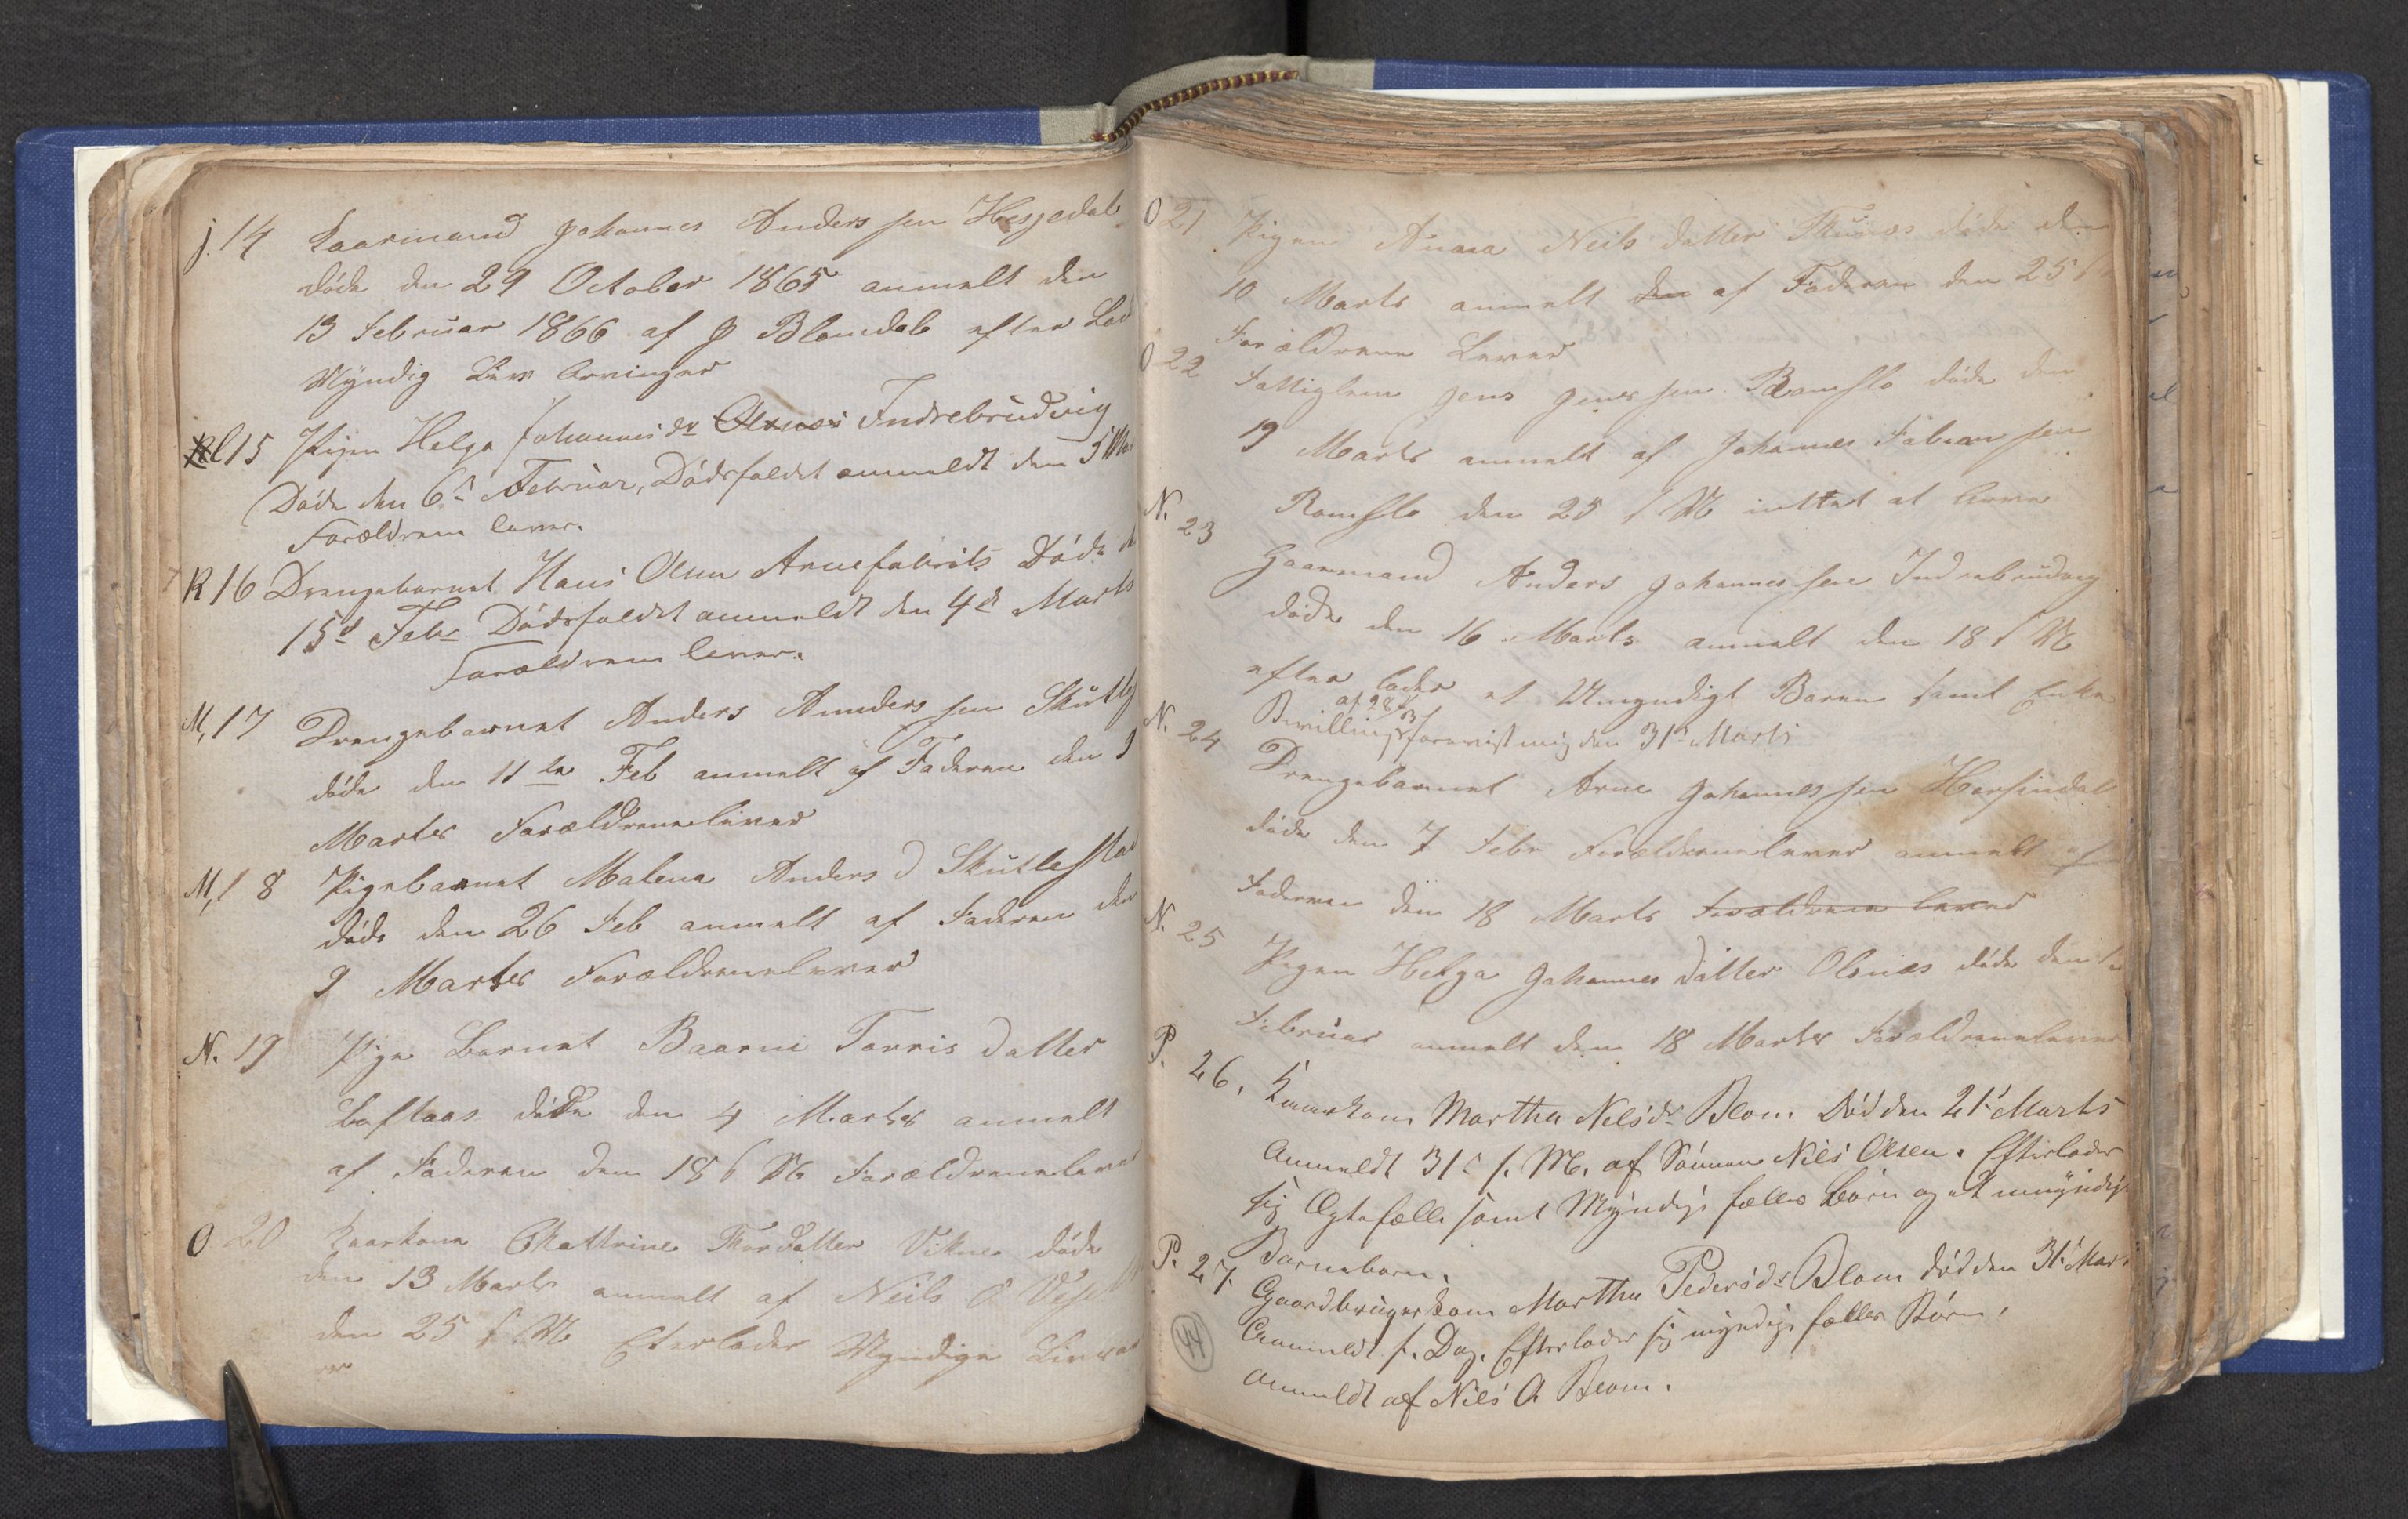 j. 14 Kaarmand Johannes Anderssen Hesjedal
döde den 29 October 1865 anmelt den
13 Februar 1866 af J Blomdal efter Lad
Myndig Livs Arvinger
l 15 Pigen Helga Johannisdr Olsnæs Indrebrudvig
Döde den 6te Februar, Dödsfaldet anmeldt den 5 Ma
Forældrene lever.
R 16 Drengebarnet Hans Olsen Arnefabrik Döde d
15d Febr Dödsfaldet anmeldt den 4d Marts
Forældrene lever.
M, 17 Drengebarnet Anders Annderssen Skutle
döde den 11te Feb anmelt af Faderen den 9
Marts Forældrene lever
M, 18 Pigebarnet Malena Anders D Skutlesta
döde den 26 Feb anmelt af Faderen den
9 Marts Forældrene lever
N. 19 Pige Barnet Baarni Torris datter
Loftaas döde den 4 Marts anmelt
af Faderen den 18 s M Forældrene lever
O 20 Kaarkona Chattrine Thordatter Vikne döde
den 13 Marts anmelt af Neils O
den 25 s M Eterlader Myndige Livsar
er
O 21 Pigen Anna Neils datter Thunes döde den
10 Marts anmelt den af Faderen den 25 s
Forældrene Lever
O 22 Fattiglem Jens Jenssen Ramslo döde den
19 Marts anmelt af Johannes Fabiansen
Romslo den 25 s M inttet at Arve
N. 23 Gaarmand Anders Johannessen Indrebrudvig
döde den 16 Marts anmelt den 18 s M
efter lader et Umyndigt Baren samt Enke
af 28/3
Bevilling forevist mig den 31te Marts
N. 24 Drengebarnet Arne Johannessen Harsindal
döde den 7 Febr Forældrene lever anmelt af
Faderen den 18 Marts Forældrene lever
N. 25 Pigen Helga Johannes datter Olsnæs döde den
Februar anmelt den 18 Marts Forældrene lever
P. 26. Kaarkone Martha Nilsdr Blom Död den 21' Marts
Anmeldt 31te s. M. af Sönnen Nils Olsen. Efterlader
sig Ægtefælle samt Myndige fælles Börn og et umyndigt
Barnebarn.
P. 27. Gaardbrugerkone Martha Pedersdr Blom död den 31' Mar
Anmeldt s. Dag. Efterlader sig myndige fælles Börn.
anmeldt af Nils A Blom.